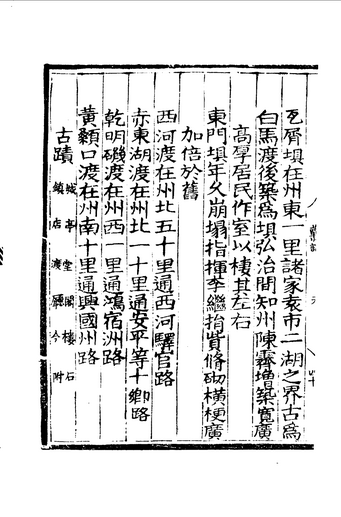 瓦屑垻在州東一里諸家袁市二湖之界古為
白馬渡後築為垻弘治間知州陳霽增築寬廣
高厚居民作室以棲其左右
東門垻年久崩塌指揮李繼捐貲脩砌橫梗廣
加倍於舊
西河渡在州北五十里通西河驛官路
赤東湖渡在州北一十里通安平等十鄉路
乾明磯渡在州西一里通鴻宿洲路
黃顙口渡在州南十里通興國州路
古蹟 城亭堂閣樓石
鎮店渡驛今附